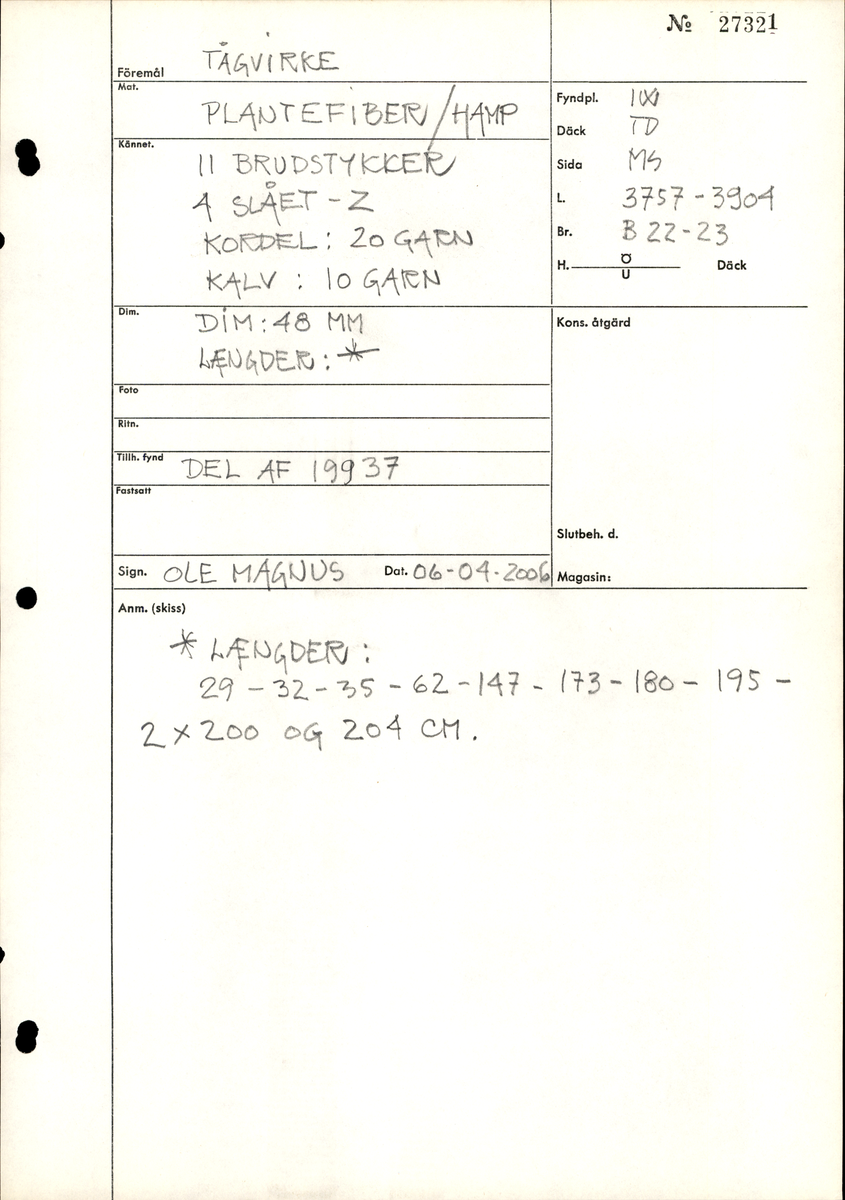 № 27321
Föremål TÅGVIRKE
Mat. PLANTEFIBER/HAMP
Kännet. 11 BRUDSTYKKER
4 SLÅET - Z
KORDEL : 20 GARN
KALV : 10 GARN
Dim. DIM : 48 MM
LÆNGDER : *
Foto
Ritn.
Tillh. fynd DEL AF 19937
Fastsatt
Sign. OLE MAGNUS Dat. 06-04-2006
Fyndpl.
Däck TD
Sida MS
L. 3757 - 3904
Br. B 22 - 23
H. Ö U Däck
Kons. åtgärd
Slutbeh. d.
Magasin:
Anm. (skiss)
* LÆNGDER :
29 - 32 - 35 - 62 - 147 - 173 - 180 - 195 -
2 x 200 OG 204 CM.